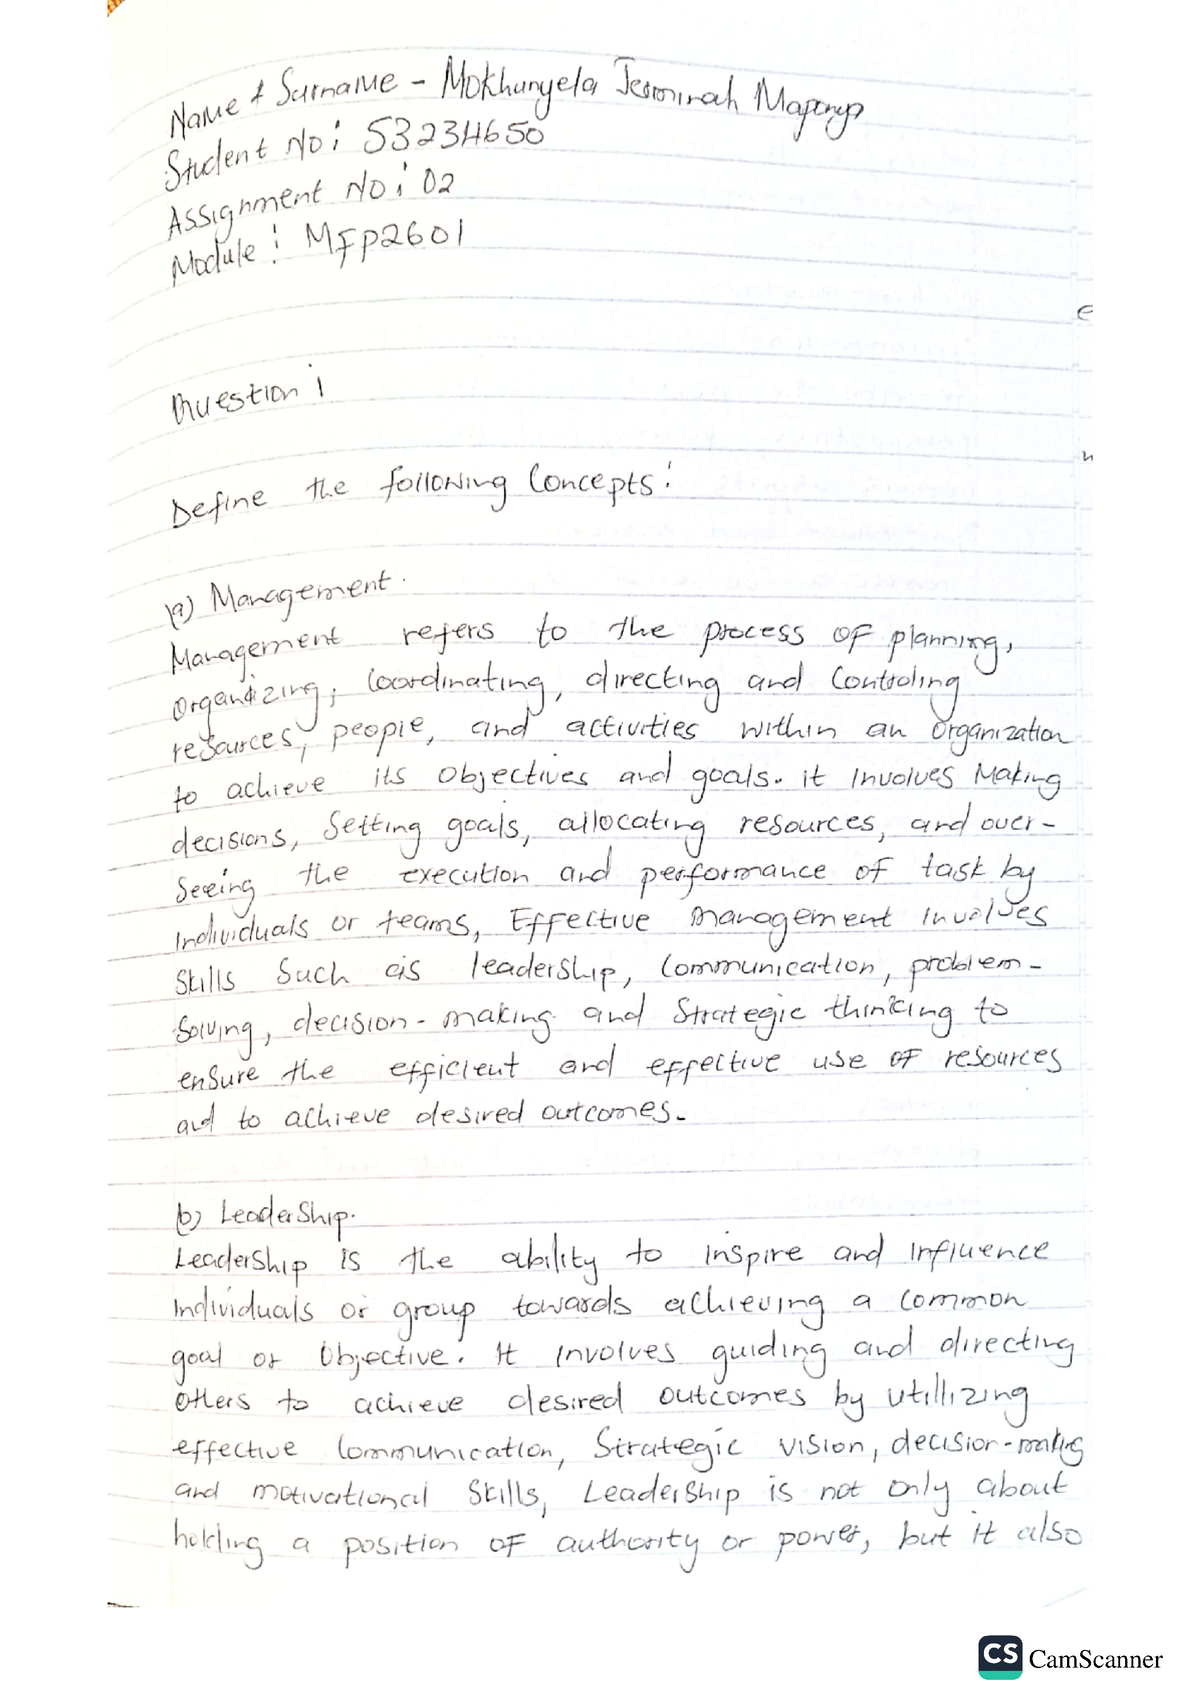 Name & Surname - Mokhunyela Jerminah
Student No: 53234650
Assignment No: 02
Module: MFP2601
e
Question 1
n
Define the following Concepts:
(a) Management.
Management refers to the process of planning,
organizing, coordinating, directing and Controling
resources, people, and activities within an organization
to achieve its objectives and goals. it Involves Making
decisions, Setting goals, allocating resources, and over-
Seeing the execution and performance of task by
Individuals or teams, Effective management Involves
Skills Such as leadership, Communication, problem-
Solving, decision-making and Strategic thinking to
ensure the efficient and effective use of resources
and to achieve desired outcomes.
b) Leadership.
Leadership is the ability to inspire and Influence
Individuals or group towards achieving a common
goal or Objective. It involves guiding and directing
others to achieve desired outcomes by utillizing
effective Communication, Strategic vision, decision-making
and motivational Skills, Leadership is not only about
holding a position of authority or power, but it also
CS CamScanner